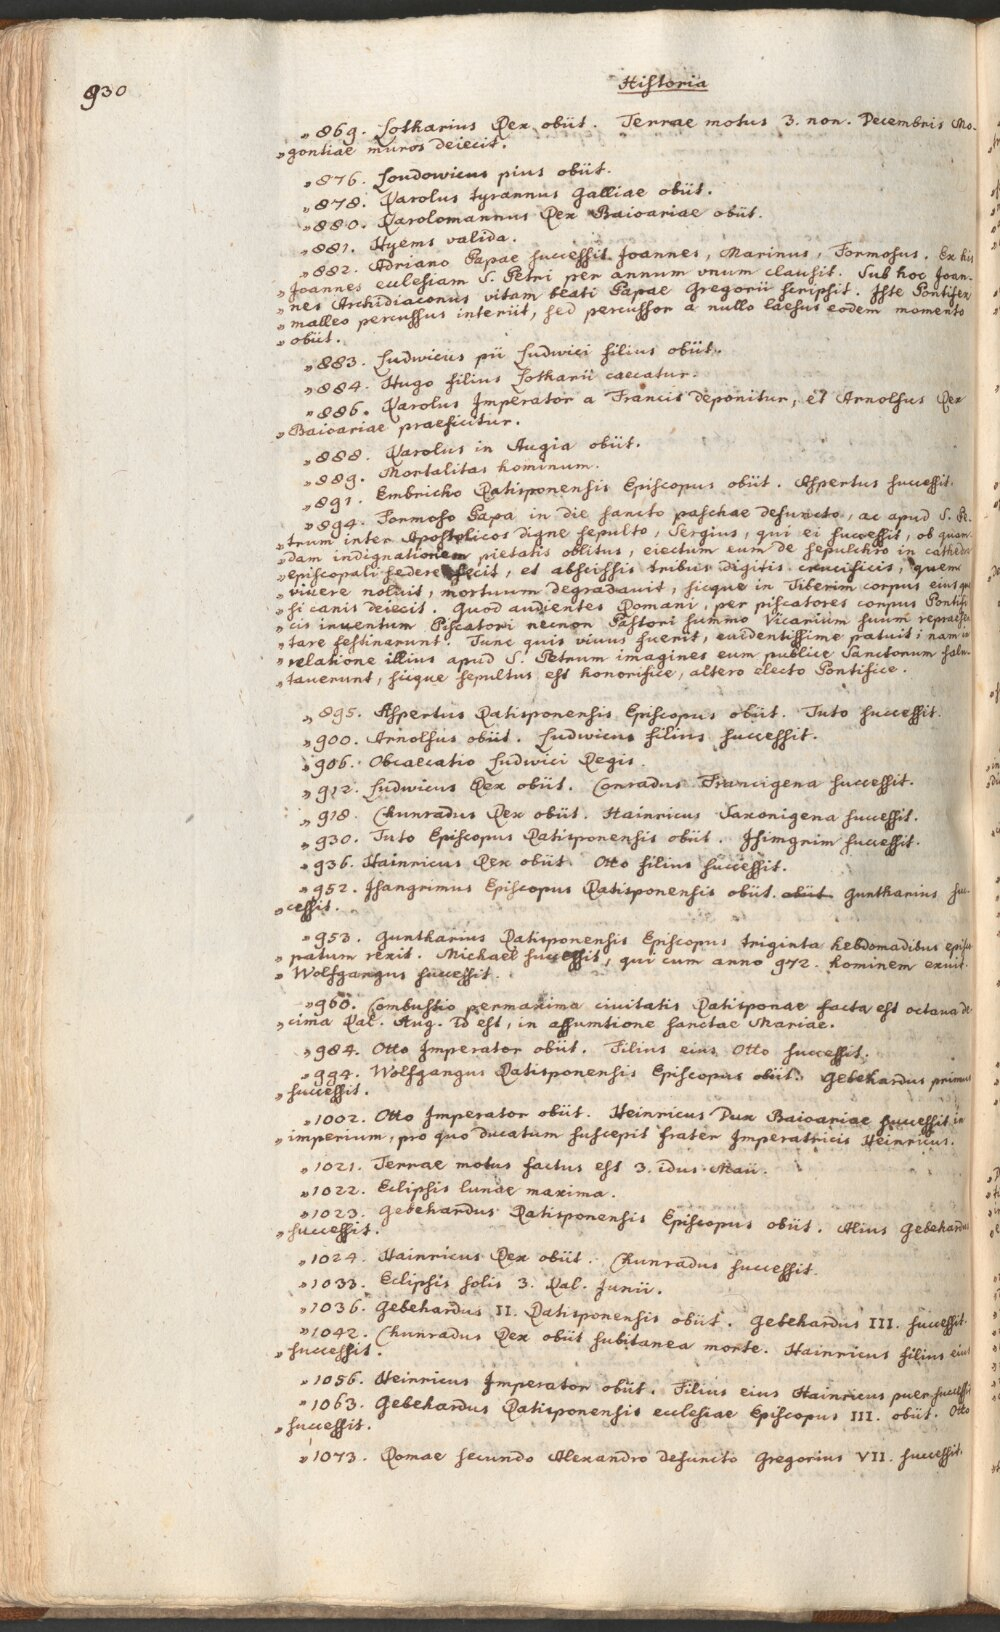 930
Historia
„ 869. Lotharius Rex obiit. Terrae motus 3. non. Decembris Mo-
„ gontiae muros deiecit.
„ 876. Loudowicus pius obiit.
„ 878. Karolus tyrannus Galliae obiit.
„ 880. Karolomannus Rex Baioariae obiit.
„ 881. Hyems valida.
„ 882. Adriano Papae successit Joannes, Marinus, Formosus. Ex his
„ Joannes ecclesiam S. Petri per annum vnum clausit. Sub hoc Joan-
„ nes Archidiaconus vitam beati Papae Gregorii scripsit. Iste Pontifex
„ malleo percussus interiit, sed percussor a nullo laesus eodem momento
„ obiit.
„ 883. Ludwicus pii Ludwici filius obiit.
„ 884. Hugo filius Lotharii caecatur.
„ 886. Karolus Imperator a Francis deponitur, et Arnolfus Rex
„ Baioariae praeficitur.
„ 888. Karolus in Augia obiit.
„ 889. Mortalitas hominum.
„ 891. Embricho Ratisponensis Episcopus obiit. Aspertus successit.
„ 894. Formoso Papa in die sancto paschae defuncto, ac apud S. Pe-
„ trum inter Apostolicos digne sepulto, Sergius, qui ei successit, ob quam-
„ dam indignationem pietatis oblitus, eiectum eum de sepulchro in cathedra
„ episcopali sedere fecit, et abscissis tribus digitis crucificis, quem
„ viuere noluit, mortuum degradauit, sicque in Tiberim corpus eius qua
„ si canis deiecit. Quod audientes Romani, per piscatores corpus Pontifi
„ cis inuentum Piscatori necnon Pastori summo Vicarium suum repraesen
„ tare festinarunt. Tunc quis viuus fuerit, euidentissime patuit; nam in
„ relatione illius apud S. Petrum imagines eum publice Sanctorum salu-
„ tauerunt, sicque sepultus est honorifice, altero electo Pontifice.
„ 895. Aspertus Ratisponensis Episcopus obiit. Tuto successit.
„ 900. Arnolfus obiit. Ludwicus filius successit.
„ 906. Obcaecatio Ludwici Regis.
„ 912. Ludwicus Rex obiit. Conradus Francigena successit.
„ 918. Chunradus Rex obiit. Hainricus Saxonigena successit.
„ 930. Tuto Episcopus Ratisponensis obiit. Isimgrim successit.
„ 936. Hainricus Rex obiit. Otto filius successit.
„ 952. Isangrimus Episcopus Ratisponensis obiit. obiit Guntharius suc-
„ cessit.
„ 953. Guntharius Ratisponensis Episcopus triginta hebdomadibus episco
„ patum rexit. Michael successit, qui cum anno 972. hominem exuit.
„ Wolfgangus successit.
„ 960. Combustio permaxima ciuitatis Ratisponae facta est octaua de
„ cima Kal. Aug. id est, in assumtione sanctae Mariae.
„ 984. Otto Imperator obiit. Filius eius Otto successit.
„ 994. Wolfgangus Ratisponensis Episcopus obiit. Gebehardus primus
„ successit.
„ 1002. Otto Imperator obiit. Heinricus Dux Baioariae successit in
„ imperium, pro quo ducatum suscepit frater Imperatricis Heinricus.
„ 1021. Terrae motus factus est 3. idus Maii.
„ 1022. Eclipsis lunae maxima.
„ 1023. Gebehardus Ratisponensis Episcopus obiit. Alius Gebehardus
„ successit.
„ 1024. Hainricus Rex obiit. Chunradus successit.
„ 1033. Eclipsis solis 3. Kal. Junii.
„ 1036. Gebehardus II. Ratisponensis obiit. Gebehardus III. successit.
„ 1042. Chunradus Rex obiit subitanea morte. Hainricus filius eius
„ successit.
„ 1056. Heinricus Imperator obiit. Filius eius Hainricus puer successit
„ 1063. Gebehardus Ratisponensis ecclesiae Episcopus III. obiit. Otto
„ successit.
„ 1073. Romae secundo Alexandro defuncto Gregorius VII. successit.